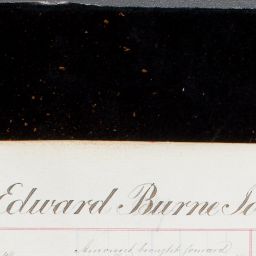 Edward Burne Jo
Amount brought forward